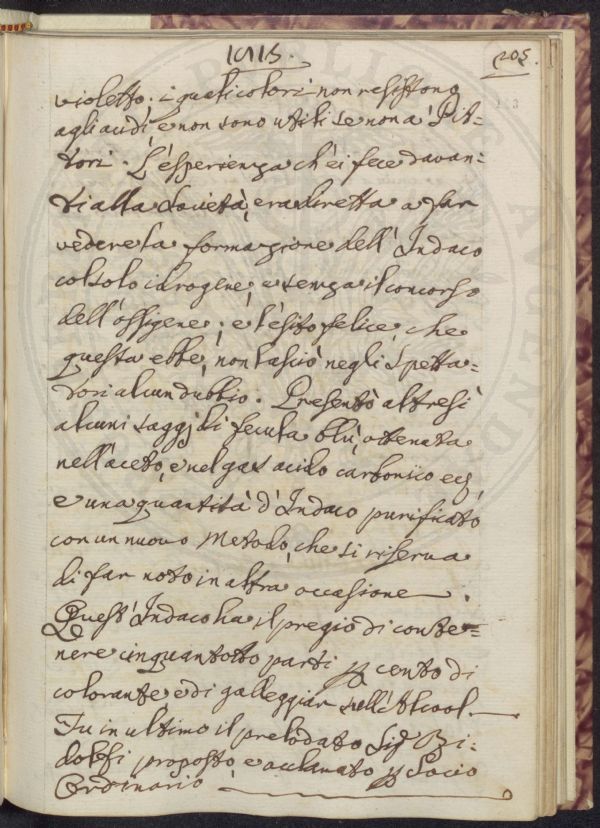 1813.
205.
violetto; i quali colori non resistono
agli acidi, e non sono utili se non a' Pit=
tori. L'esperienza ch'ei fece davan=
ti alla Società, era diretta a far
vedere la formazione dell'Indaco
col solo idrogene, e senza il concorso
dell'ossigene; e l'esito felice, che
questa ebbe, non lasciò negli Spetta=
tori alcun dubbio. Presentò altresì
alcuni saggj di fecula blù, ottenuta
nell'aceto, e nel gas acido carbonico ec,
e una quantità d'Indaco purificato
con un nuovo Metodo, che si riserva
di far noto in altra occasione.
Quest'Indaco ha il pregio di conte=
nere cinquantotto parti p cento di
colorante e di galleggiar sull'Alcool.
Fu in ultimo il prelodato Sig
proposto, e acclamato p Socio
Ordinario